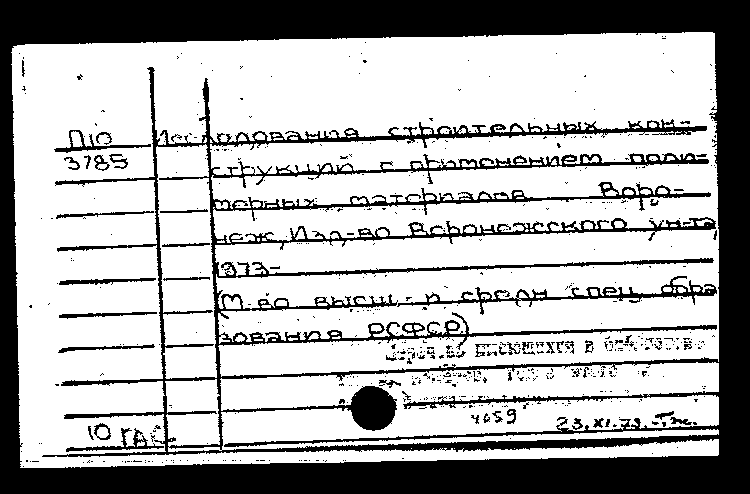 П10 Исследования строительных кон-
3785 струкций с применением поли-
мерных материалов. Воро-
неж, Изд-во Воронежского ун-та,
1973-
(М-во высш. и средн спец обра
зования РСФСР)
имеющихся в
4059 23.XI.73.
10 ГАС